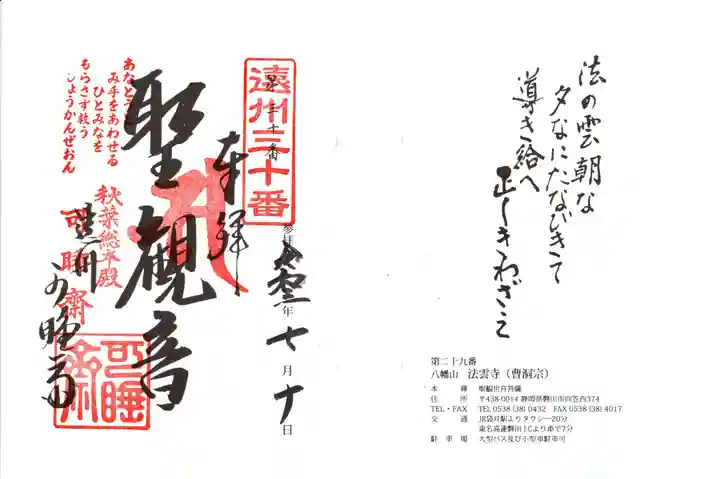 法の雲朝な
夕なにたなびきて
導き給へ
正しきわざを
第二十九番
八幡山 法雲寺（曹洞宗）
本尊 聖観世音菩薩
住所 〒438-0014 静岡県磐田市向笠西374
TEL・FAX TEL 0538 (38) 0432 FAX 0538 (38) 4017
交通 JR袋井駅よりタクシー20分
東名高速磐田ICより車で7分
駐車場 大型バス及び小型車駐車可
遠州三十番
第三十番
奉拝
参拝 令和三年七月十日
聖観音
あなとうと
み手をあわせる
ひとみなを
もらさず救う
しょうかんぜおん
秋葉総本殿
可睡齋
遠州
可睡斎